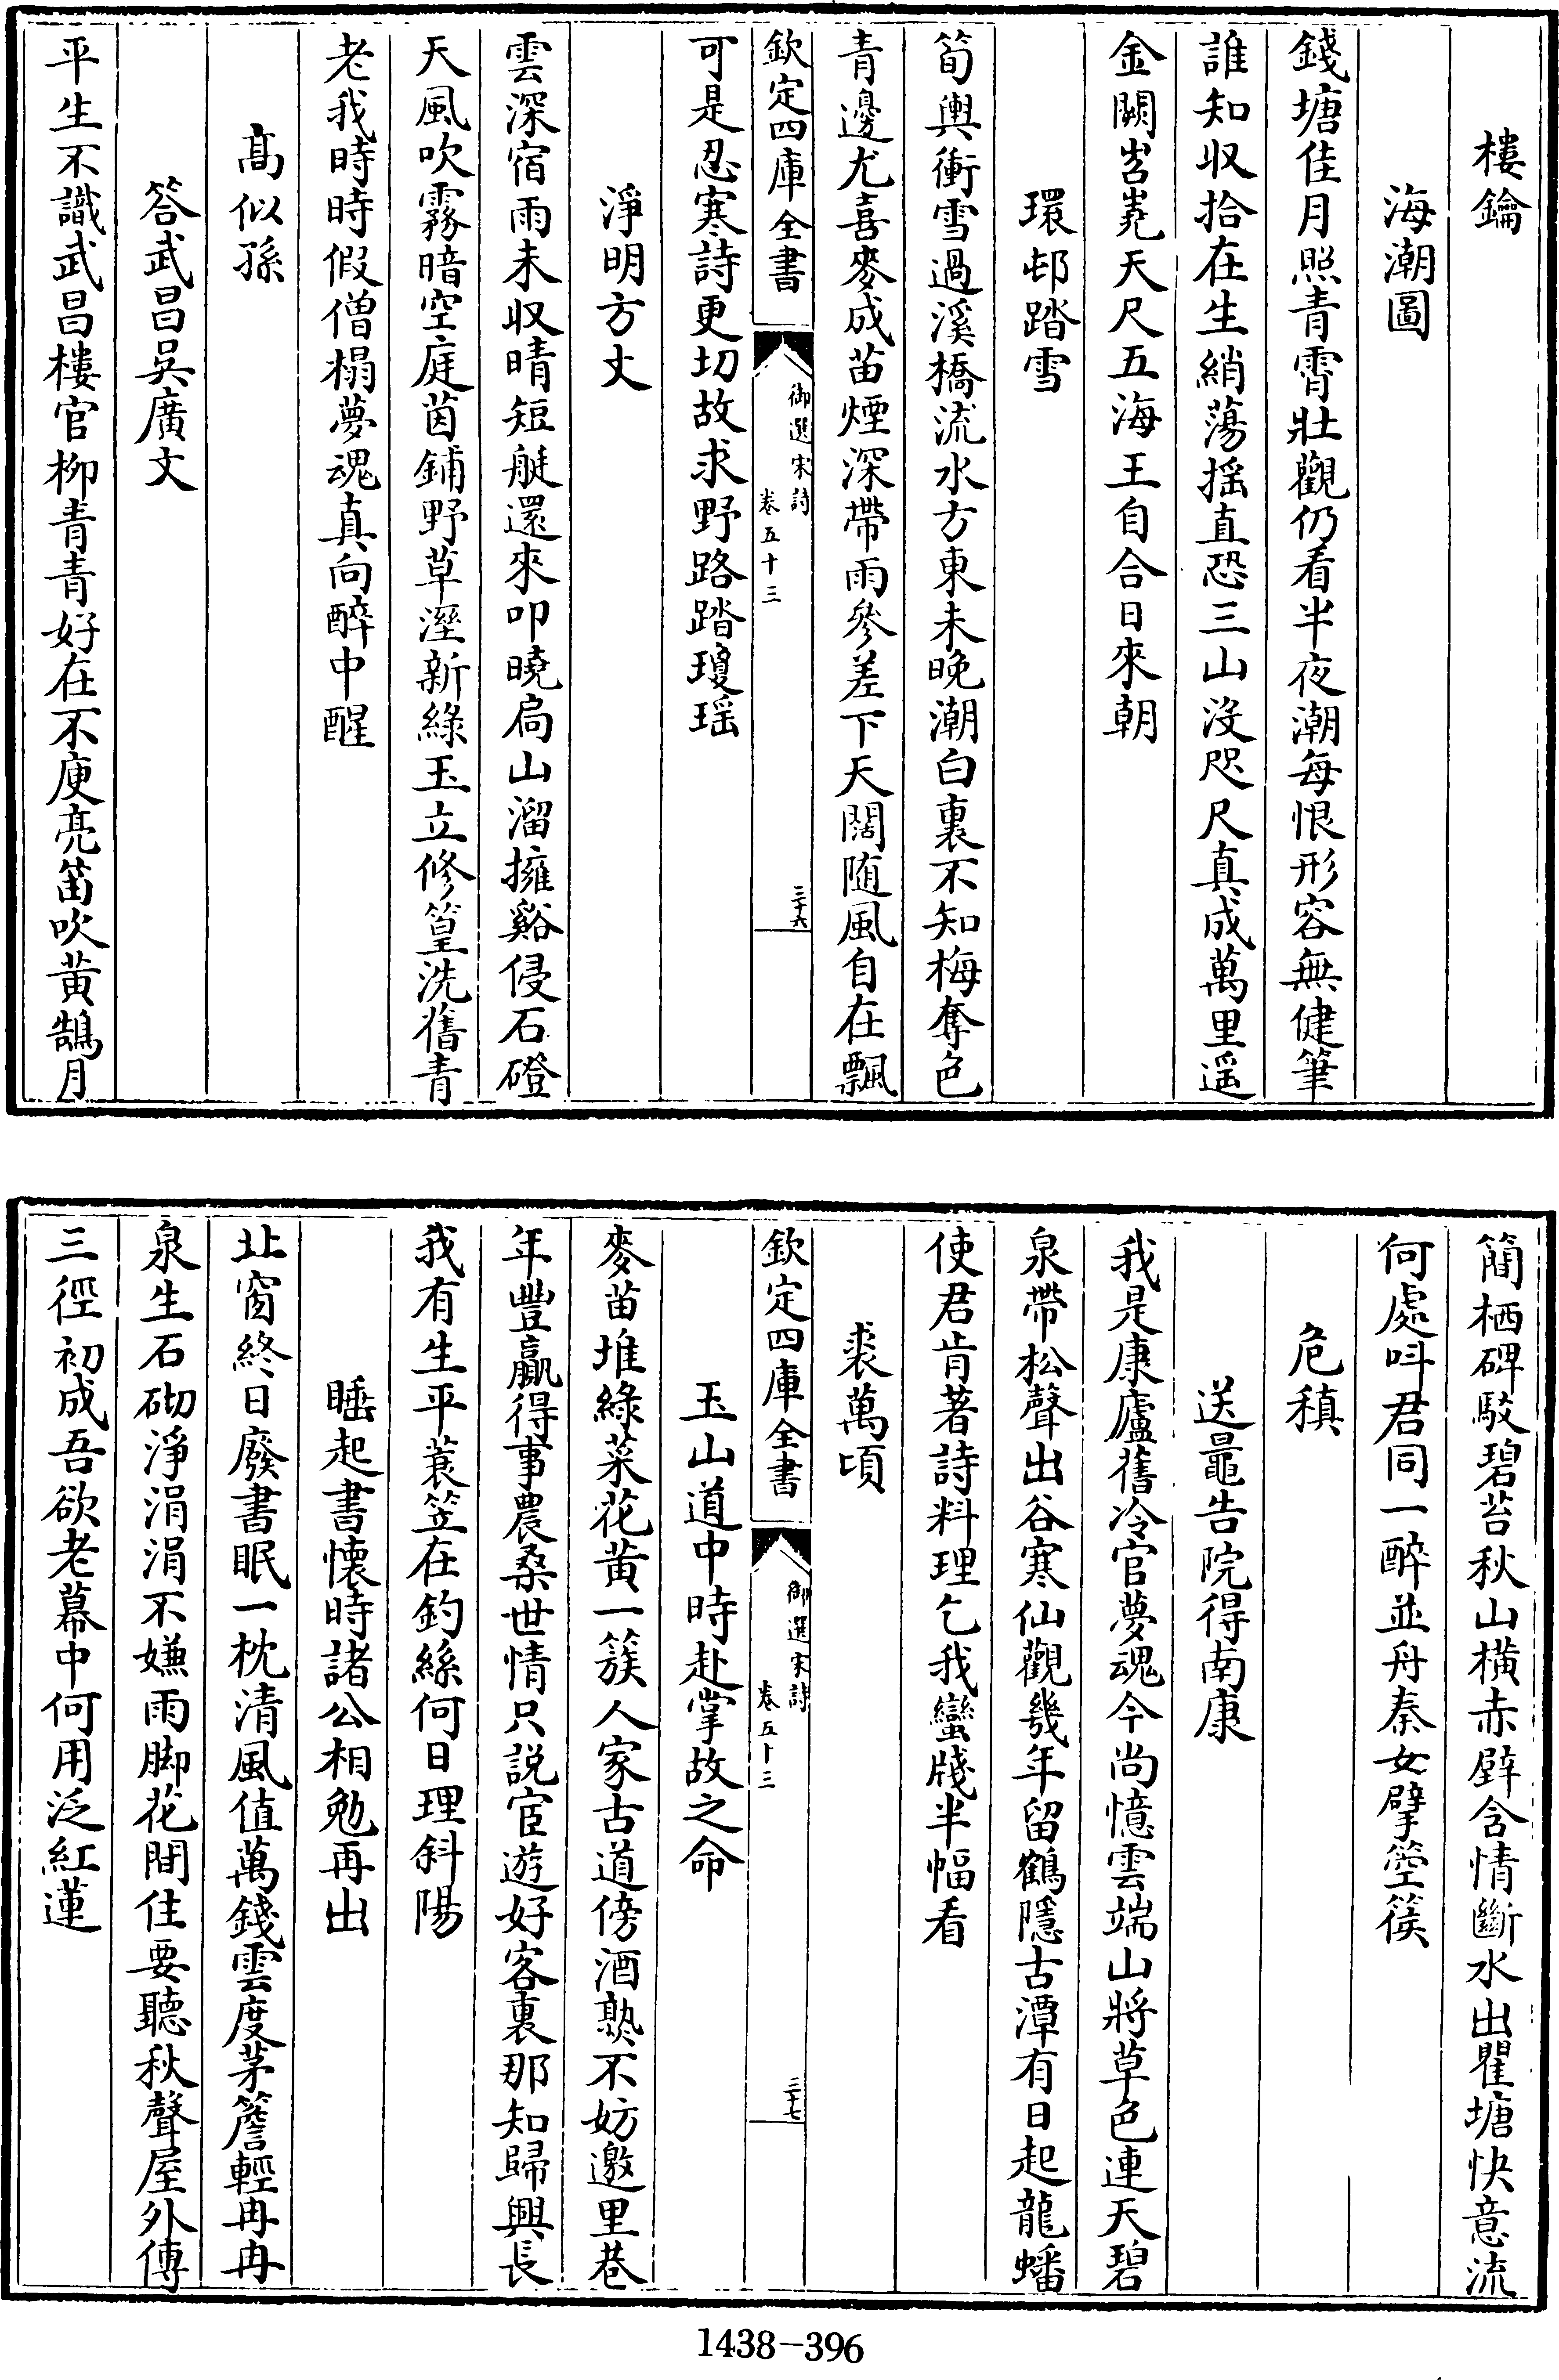 樓鑰
海潮圖
錢塘佳月照青霄壯觀仍看半夜潮每恨形容無健筆
誰知収拾在生綃蕩揺直恐三山沒咫尺真成萬里遥
金闕岧嶤天尺五海王自合日來朝
環邨踏雪
筍輿衝雪過溪橋流水方東未晚潮白裏不知梅奪色
青邊尤喜麥成苗煙深帶雨參差下天闊随風自在飄
欽定四庫全書
御選宋詩
卷五十三
三十六
可是忍寒詩更切故求野路踏瓊瑶
淨明方丈
雲深宿雨未収晴短艇還來叩曉扃山溜擁谿侵石磴
天風吹霧暗空庭茵鋪野草溼新綠玉立修篁洗舊青
老我時時假僧榻夢魂真向醉中醒
髙似孫
答武昌吳廣文
平生不識武昌樓官柳青青好在不庾亮笛吹黃鵠月
簡栖碑駁碧苔秋山横赤壁含情斷水出瞿塘快意流
何處呌君同一醉並舟秦女擘箜篌
危稹
送鼂告院得南康
我是康廬舊冷官夢魂今尚憶雲端山將草色連天碧
泉帶松聲出谷寒仙觀幾年留鶴隱古潭有日起龍蟠
使君肯著詩料理乞我蠻牋半幅看
裘萬頃
欽定四庫全書
御選宋詩
卷五十三
三十七
玉山道中時赴掌故之命
麥苗堆綠菜花黃一簇人家古道傍酒熟不妨邀里巷
年豐贏得事農桑世情只説宦遊好客裏那知歸興長
我有生平蓑笠在釣絲何日理斜陽
睡起書懷時諸公相勉再出
北窗終日廢書眠一枕清風值萬錢雲度茅簷輕冉冉
泉生石砌淨涓涓不嫌雨脚花閒住要聽秋聲屋外傳
三徑初成吾欲老幕中何用泛紅蓮
1438-396